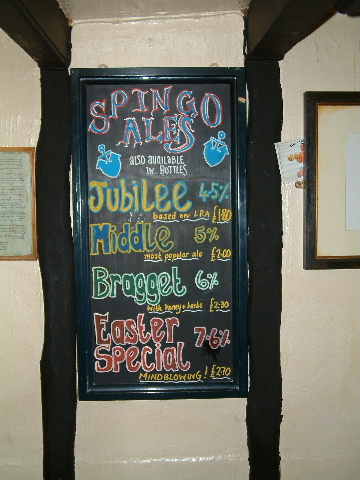 SPINGO
ALES
ALSO AVAILABLE
IN BOTTLES
Jubilee 4.5%
based on I.P.A £1.80
Middle 5%
most popular ale £2.00
Bragget 6%
with honey + herbs £2.30
Easter
Special 7.6%
MINDBLOWING! £2.70